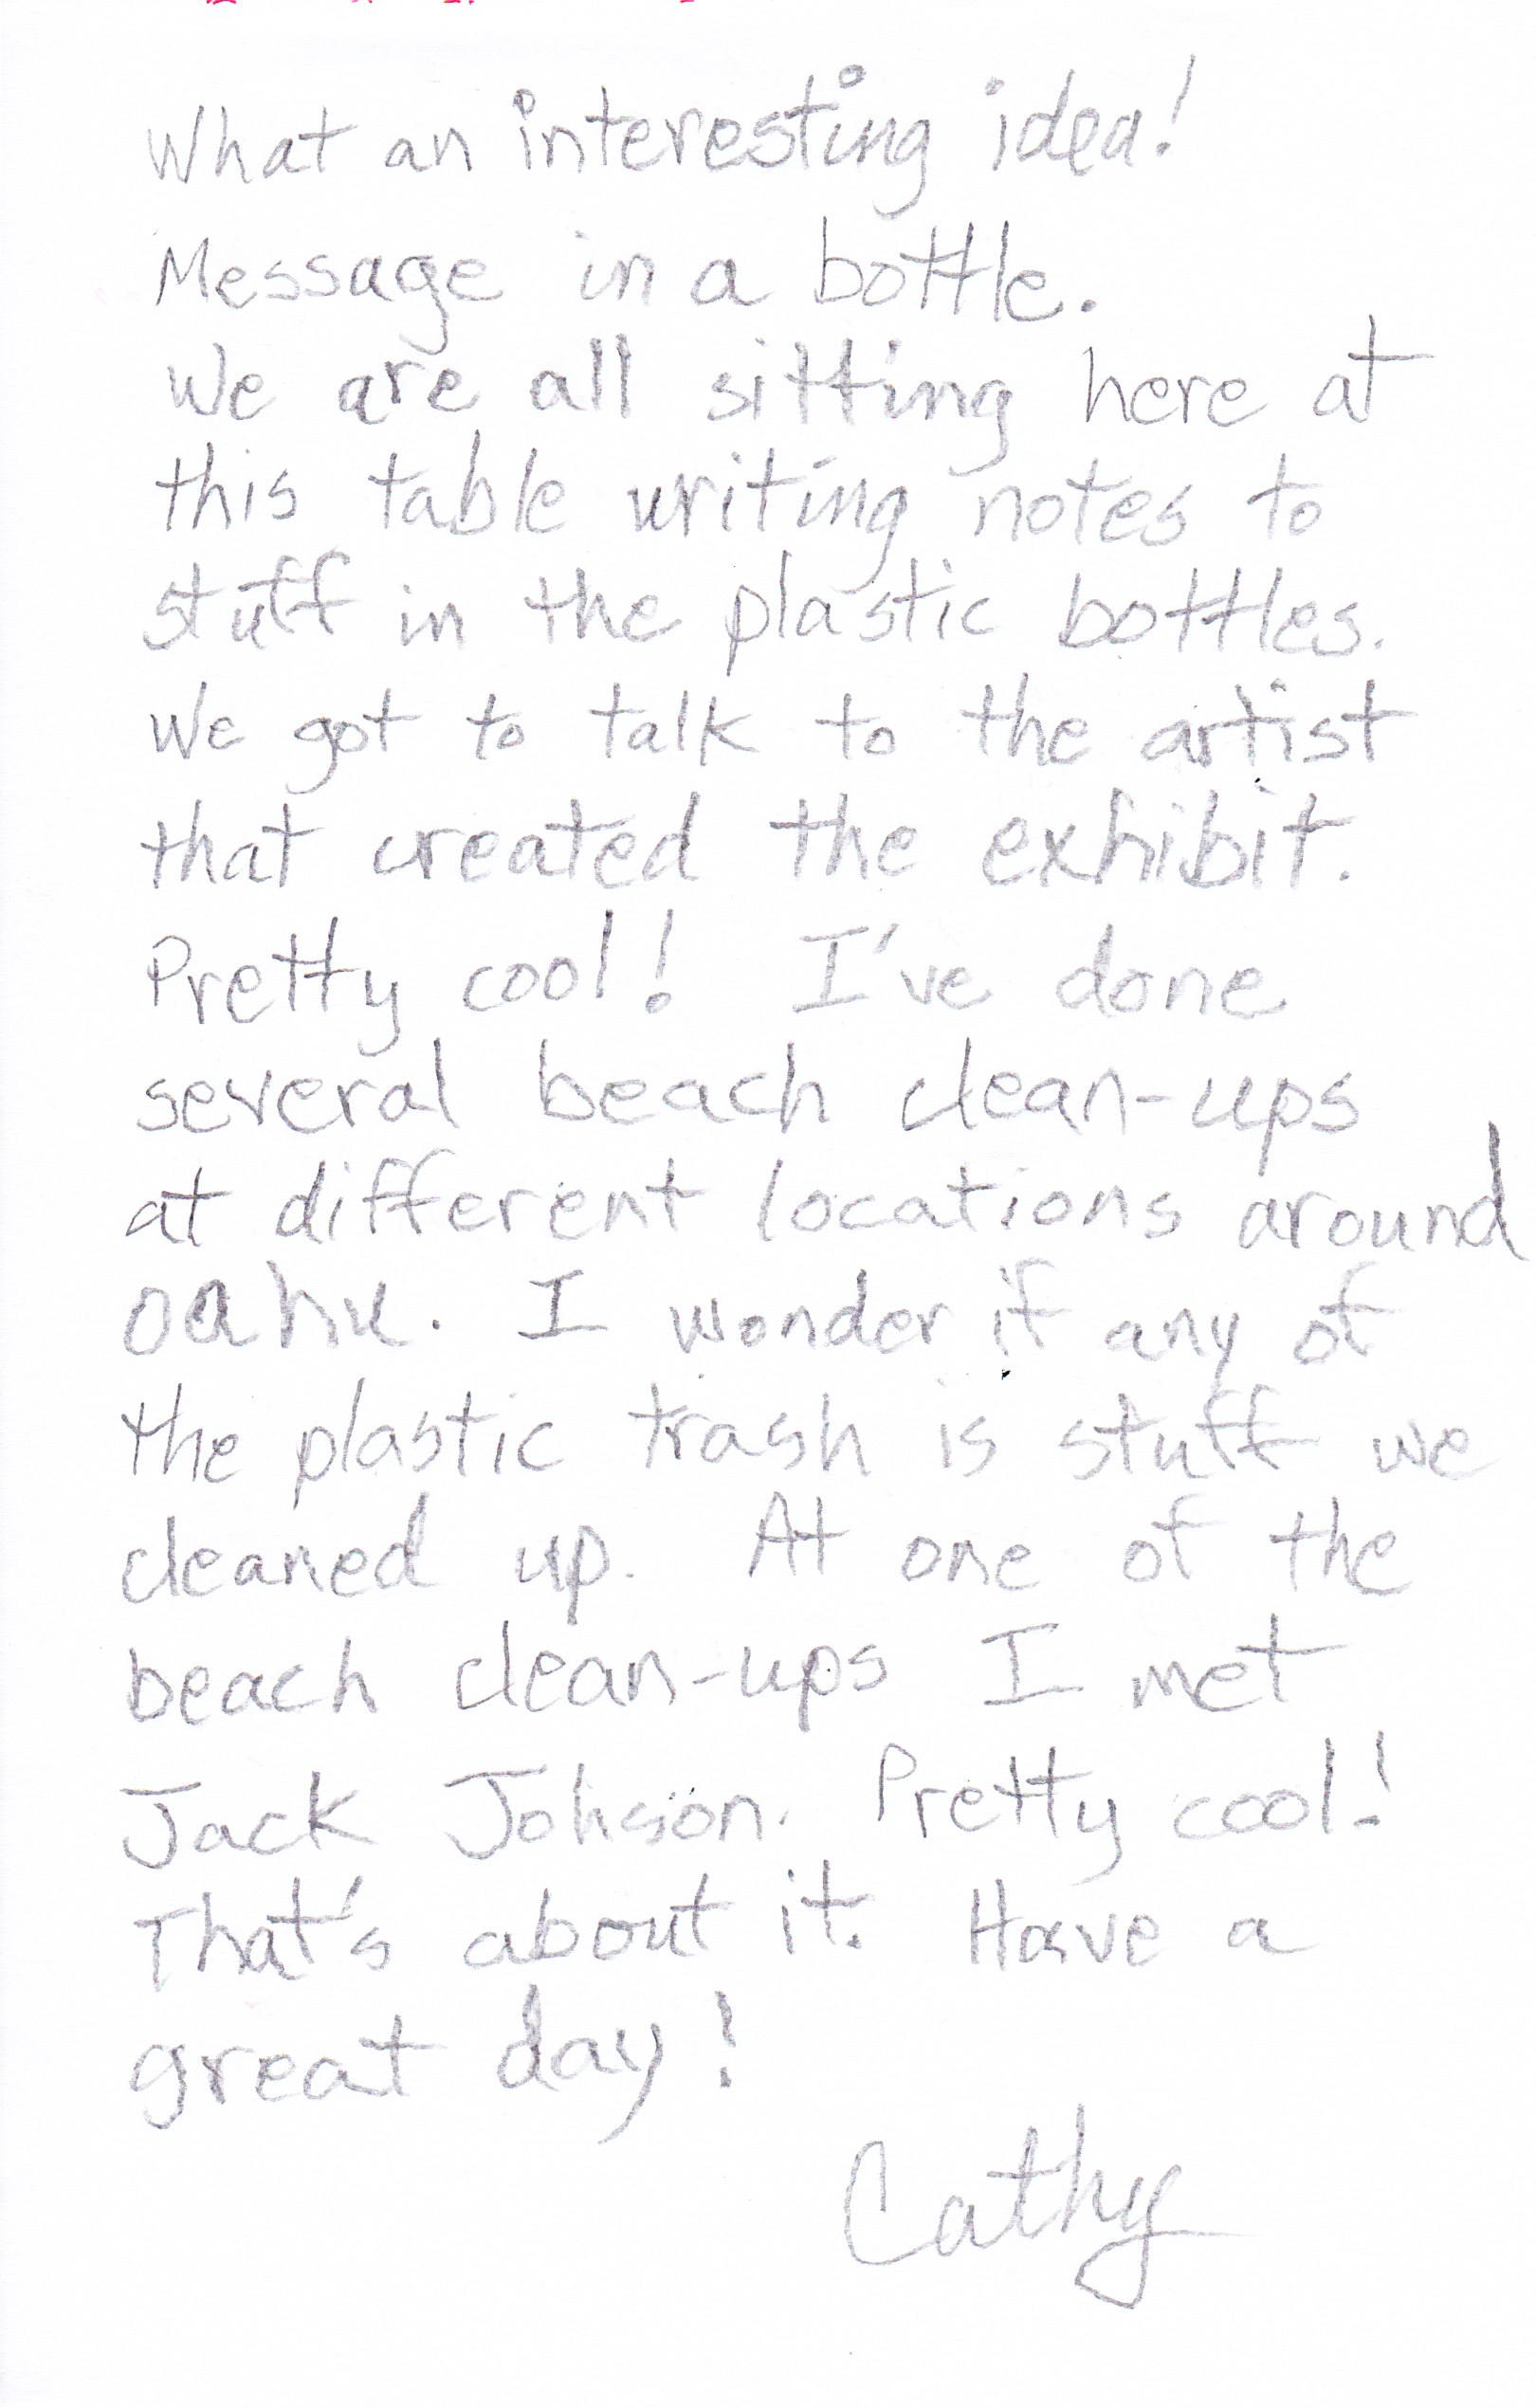 What an interesting idea!
Message in a bottle.
We are all sitting here at
this table writing notes to
stuff in the plastic bottles.
We got to talk to the artist
that created the exhibit.
Pretty cool! I've done
several beach clean-ups
at different locations around
oahu. I wonder if any of
the plastic trash is stuff we
cleaned up. At one of the
beach clean-ups I met
Jack Johson. Pretty cool!
That's about it. Have a
great day!
Cathy